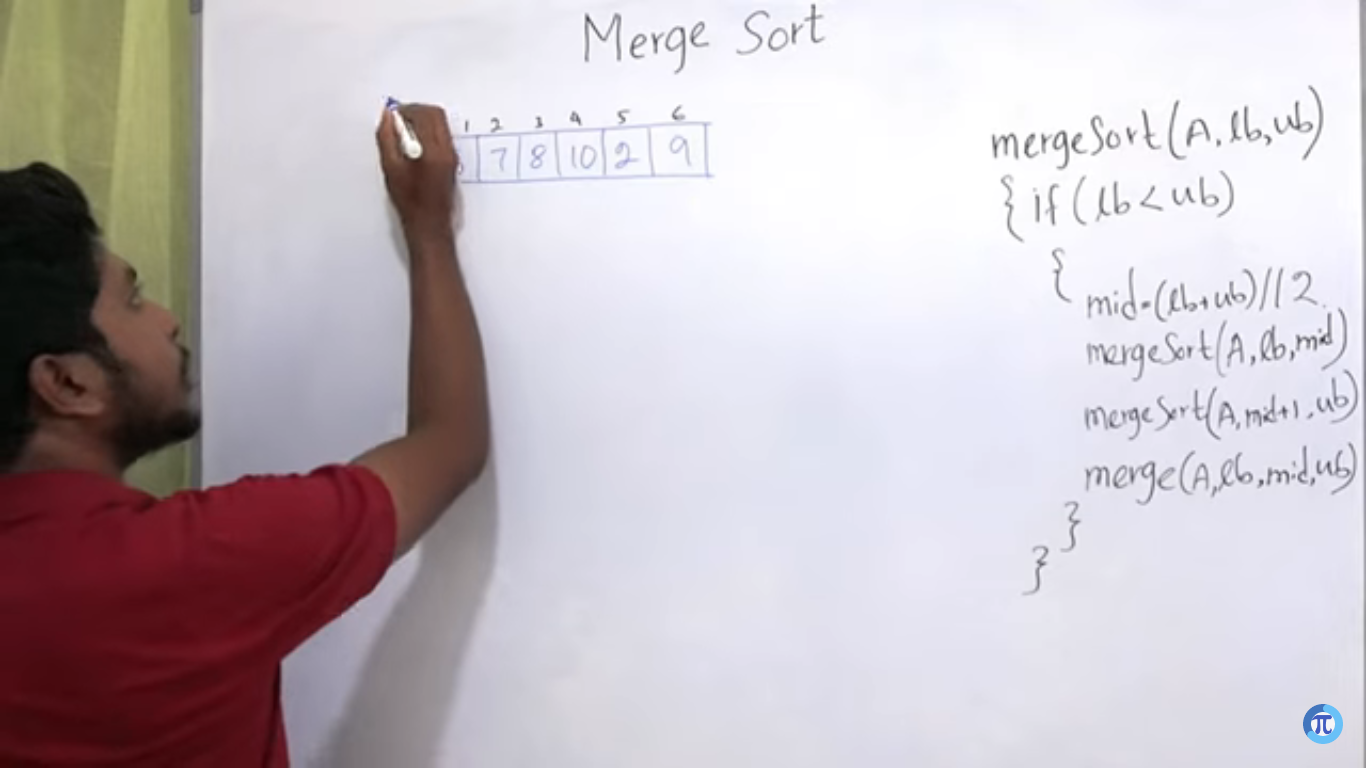 Merge Sort
1 2 3 4 5 6
7 8 10 2 9
mergeSort(A,lb,ub)
{ if (lb<ub)
{
mid=(lb+ub)//2
mergeSort(A,lb,mid)
mergeSort(A,mid+1,ub)
merge(A,lb,mid,ub)
}
}
π